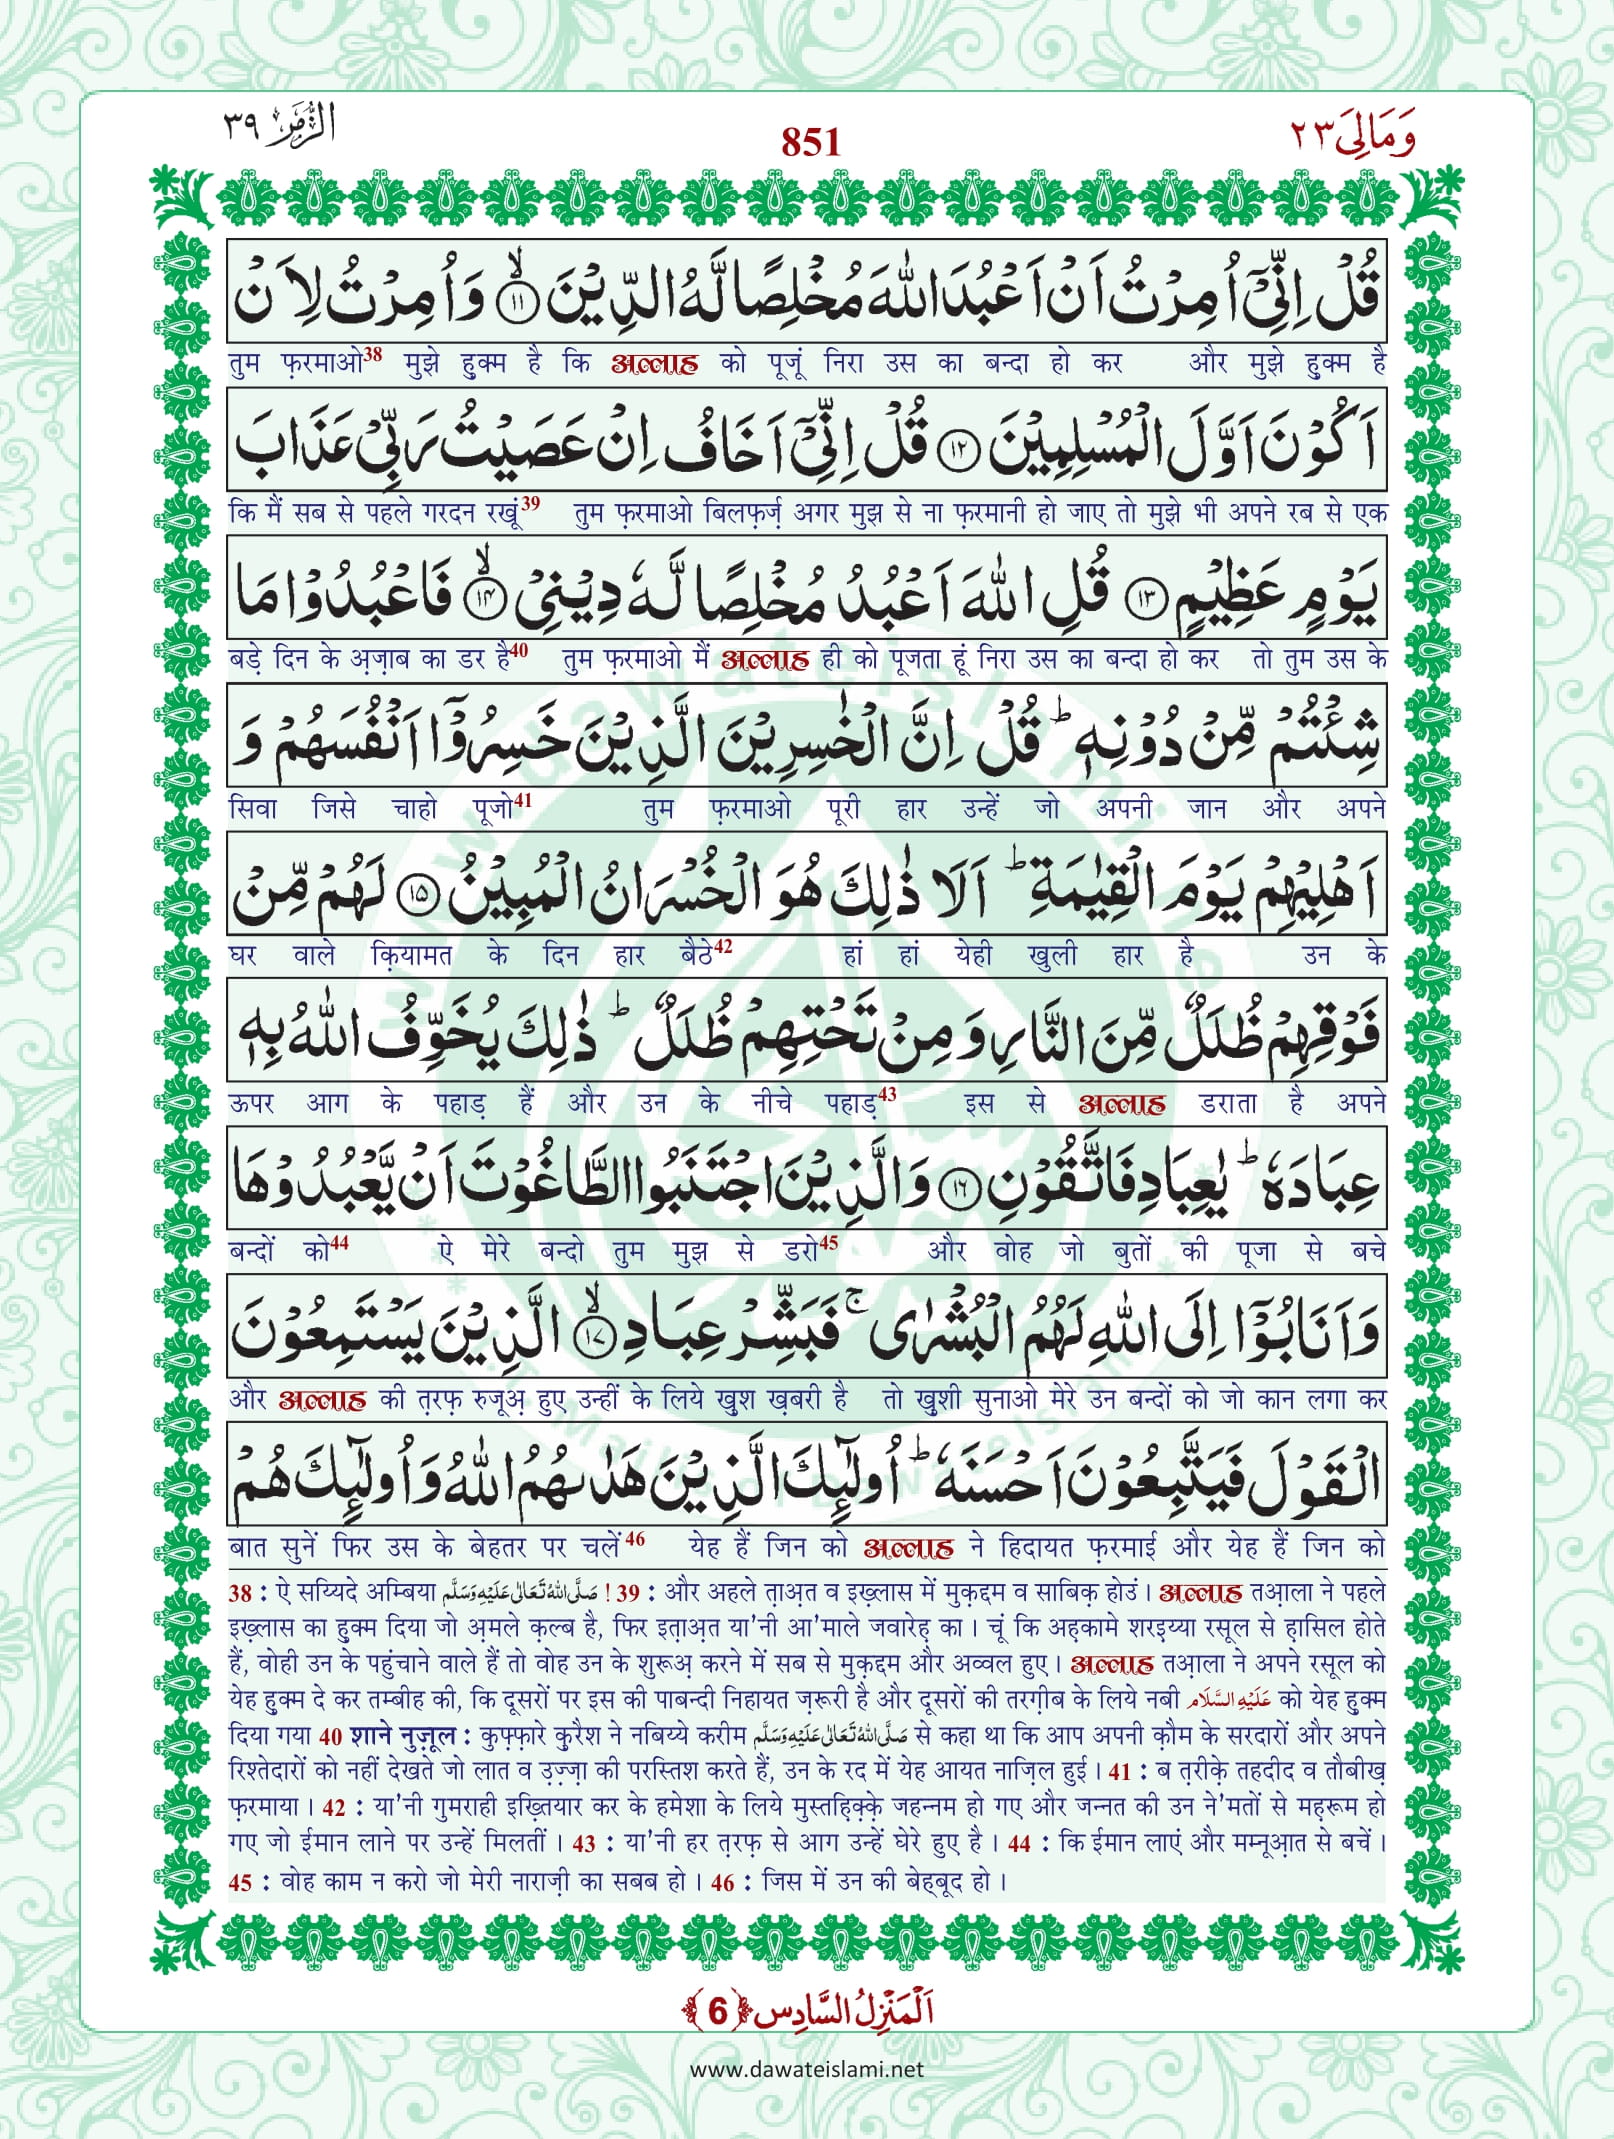 وَمَالِیَ ٢٣
851
الزُّمَر ٣٩
قُلْ اِنِّیْۤ اُمِرْتُ اَنْ اَعْبُدَ اللّٰهَ مُخْلِصًا لَّهُ الدِّیْنَۙ ۝۱۱ وَ اُمِرْتُ لِاَنْ
तुम फ़रमाओ38 मुझे हुक्म है कि अल्लाह को पूजूं निरा उस का बन्दा हो कर और मुझे हुक्म है
اَكُوْنَ اَوَّلَ الْمُسْلِمِیْنَ ۝۱۲ قُلْ اِنِّیْۤ اَخَافُ اِنْ عَصَیْتُ رَبِّیْ عَذَابَ
कि मैं सब से पहले गरदन रखूं39 तुम फ़रमाओ बिलफ़र्ज़ अगर मुझ से ना फ़रमानी हो जाए तो मुझे भी अपने रब से एक
یَوْمٍ عَظِیْمٍ ۝۱۳ قُلِ اللّٰهَ اَعْبُدُ مُخْلِصًا لَّهٗ دِیْنِیْۙ ۝۱۴ فَاعْبُدُوْا مَا
बड़े दिन के अ़ज़ाब का डर है40 तुम फ़रमाओ मैं अल्लाह ही को पूजता हूं निरा उस का बन्दा हो कर तो तुम उस के
شِئْتُمْ مِّنْ دُوْنِهٖؕ قُلْ اِنَّ الْخٰسِرِیْنَ الَّذِیْنَ خَسِرُوْۤا اَنْفُسَهُمْ وَ
सिवा जिसे चाहो पूजो41 तुम फ़रमाओ पूरी हार उन्हें जो अपनी जान और अपने
اَهْلِیْهِمْ یَوْمَ الْقِیٰمَةِؕ اَلَا ذٰلِكَ هُوَ الْخُسْرَانُ الْمُبِیْنُ ۝۱۵ لَهُمْ مِّنْ
घर वाले क़ियामत के दिन हार बैठे42 हां हां येही खुली हार है उन के
فَوْقِهِمْ ظُلَلٌ مِّنَ النَّارِ وَ مِنْ تَحْتِهِمْ ظُلَلٌؕ ذٰلِكَ یُخَوِّفُ اللّٰهُ بِهٖ
ऊपर आग के पहाड़ हैं और उन के नीचे पहाड़43 इस से अल्लाह डराता है अपने
عِبَادَهٗؕ یٰعِبَادِ فَاتَّقُوْنِ ۝۱۶ وَ الَّذِیْنَ اجْتَنَبُوا الطَّاغُوْتَ اَنْ یَّعْبُدُوْهَا
बन्दों को44 ऐ मेरे बन्दो तुम मुझ से डरो45 और वोह जो बुतों की पूजा से बचे
وَ اَنَابُوْۤا اِلَى اللّٰهِ لَهُمُ الْبُشْرٰىۚ فَبَشِّرْ عِبَادِۙ ۝۱۷ الَّذِیْنَ یَسْتَمِعُوْنَ
और अल्लाह की त़रफ़ रुजूअ़ हुए उन्हीं के लिये खुश ख़बरी है तो खुशी सुनाओ मेरे उन बन्दों को जो कान लगा कर
الْقَوْلَ فَیَتَّبِعُوْنَ اَحْسَنَهٗؕ اُولٰٓىٕكَ الَّذِیْنَ هَدٰىهُمُ اللّٰهُ وَ اُولٰٓىٕكَ هُمْ
बात सुनें फिर उस के बेहतर पर चलें46 येह हैं जिन को अल्लाह ने हिदायत फ़रमाई और येह हैं जिन को
38 : ऐ सय्यिदे अम्बिया صَلَّى اللّٰهُ تَعَالٰى عَلَيْهِ وَسَلَّم ! 39 : और अहले त़ाअ़त व इख़्लास में मुक़द्दम व साबिक़ होउं। अल्लाह तआ़ला ने पहले
इख़्लास का हुक्म दिया जो अ़मले क़ल्ब है, फिर इत़ाअ़त या'नी आ'माले जवारेह़ का। चूं कि अह़कामे शरइ़य्या रसूल से ह़ासिल होते
हैं, वोही उन के पहुंचाने वाले हैं तो वोह उन के शुरूअ़ करने में सब से मुक़द्दम और अव्वल हुए। अल्लाह तआ़ला ने अपने रसूल को
येह हुक्म दे कर तम्बीह की, कि दूसरों पर इस की पाबन्दी निहायत ज़रूरी है और दूसरों की तरग़ीब के लिये नबी عَلَيْهِ السَّلَام को येह हुक्म
दिया गया 40 शाने नुज़ूल : कुफ़्फ़ारे कुरैश ने नबिय्ये करीम صَلَّى اللّٰهُ تَعَالٰى عَلَيْهِ وَسَلَّم से कहा था कि आप अपनी क़ौम के सरदारों और अपने
रिश्तेदारों को नहीं देखते जो लात व उ़ज़्ज़ा की परस्तिश करते हैं, उन के रद में येह आयत नाज़िल हुई। 41 : ब त़रीक़े तहदीद व तौबीख़
फ़रमाया। 42 : या'नी गुमराही इख़्तियार कर के हमेशा के लिये मुस्तह़िक़्क़े जहन्नम हो गए और जन्नत की उन ने'मतों से मह़रूम हो
गए जो ईमान लाने पर उन्हें मिलतीं। 43 : या'नी हर त़रफ़ से आग उन्हें घेरे हुए है। 44 : कि ईमान लाएं और मम्नूआ़त से बचें।
45 : वोह काम न करो जो मेरी नाराज़ी का सबब हो। 46 : जिस में उन की बेह्बूद हो।
اَلْمَنْزِلُ السَّادِس ﴿6﴾
www.dawateislami.net